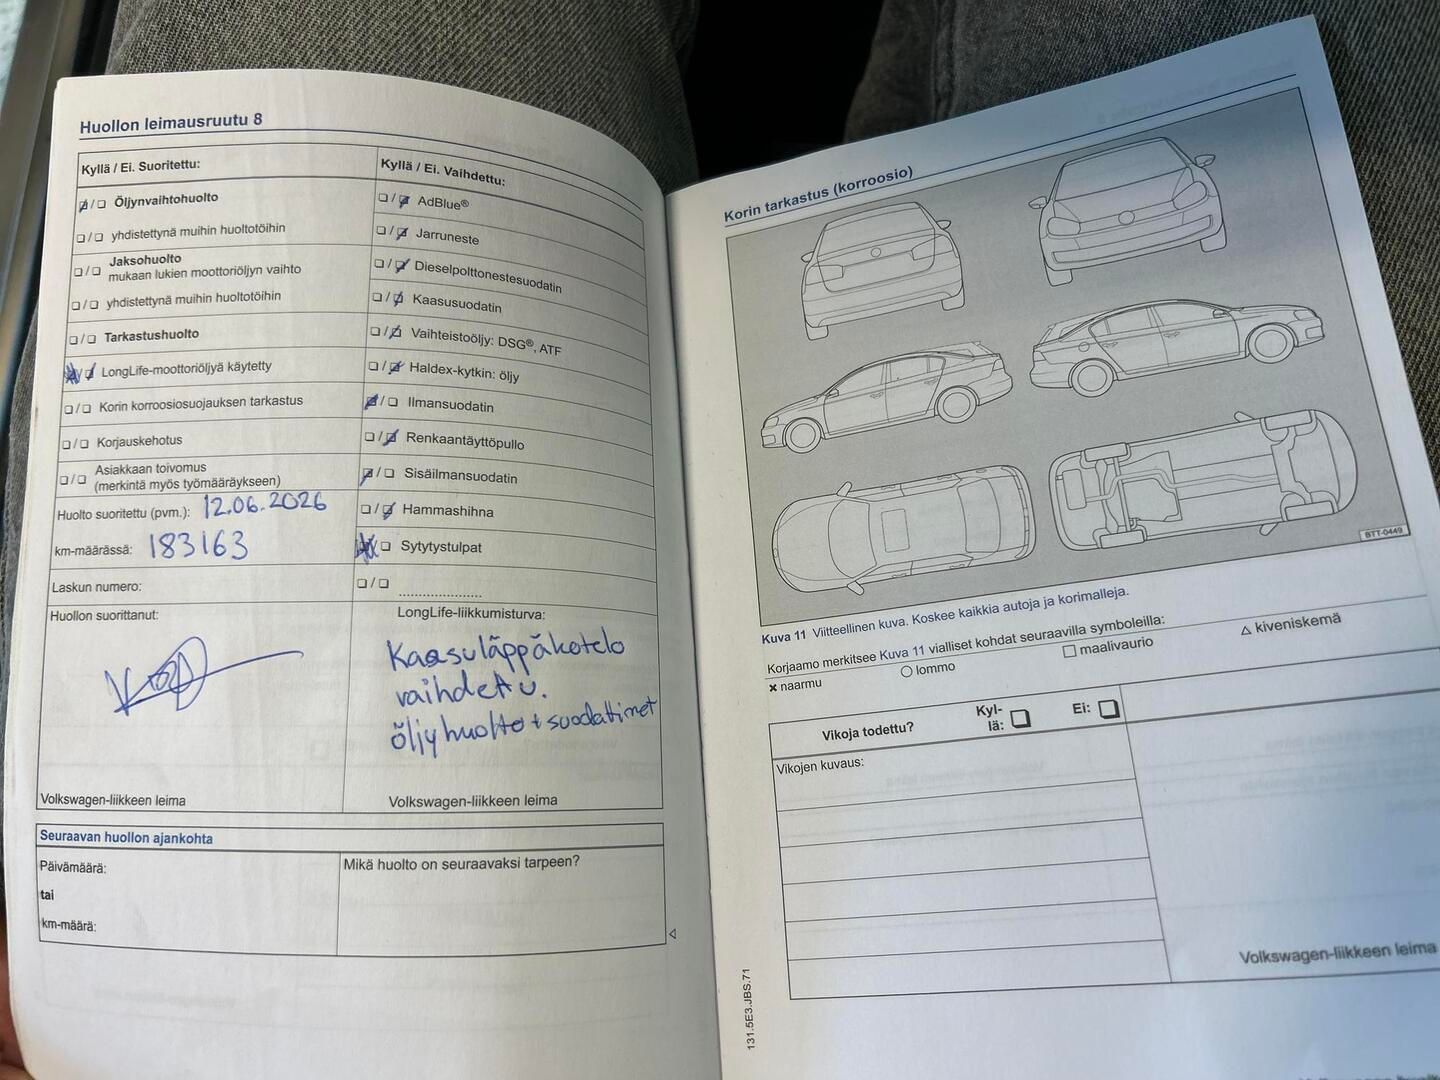 Huollon leimausruutu 8
Kyllä / Ei. Suoritettu:
☑/☐ Öljynvaihtohuolto
☐/☐ yhdistettynä muihin huoltotöihin
☐/☐ Jaksohuolto
mukaan lukien moottoriöljyn vaihto
☐/☐ yhdistettynä muihin huoltotöihin
☐/☐ Tarkastushuolto
☑/☑ LongLife-moottoriöljyä käytetty
☐/☐ Korin korroosiosuojauksen tarkastus
☐/☐ Korjauskehotus
☐/☐ Asiakkaan toivomus
(merkintä myös työmääräykseen)
Huolto suoritettu (pvm.): 12.06.2026
km-määrässä: 183163
Laskun numero:
Huollon suorittanut:
Volkswagen-liikkeen leima
Kyllä / Ei. Vaihdettu:
☐/☑ AdBlue®
☐/☑ Jarruneste
☐/☑ Dieselpolttonestesuodatin
☐/☑ Kaasusuodatin
☐/☑ Vaihteistoöljy: DSG®, ATF
☐/☑ Haldex-kytkin: öljy
☑/☐ Ilmansuodatin
☐/☑ Renkaantäyttöpullo
☑/☐ Sisäilmansuodatin
☐/☑ Hammashihna
☑/☐ Sytytystulpat
☐/☐ ....................
LongLife-liikkumisturva:
Kaasuläppäkotelo
vaihdettu.
öljyhuolto + suodattimet
Volkswagen-liikkeen leima
Seuraavan huollon ajankohta
Päivämäärä:
tai
km-määrä:
Mikä huolto on seuraavaksi tarpeen?
Korin tarkastus (korroosio)
BTT-0449
Kuva 11 Viitteellinen kuva. Koskee kaikkia autoja ja korimalleja.
Korjaamo merkitsee Kuva 11 vialliset kohdat seuraavilla symboleilla:
✖ naarmu ○ lommo ☐ maalivaurio △ kiveniskemä
Vikoja todettu? Kyl-
lä: ☐ Ei: ☐
Vikojen kuvaus:
Volkswagen-liikkeen leima
131.5E3.JBS.71